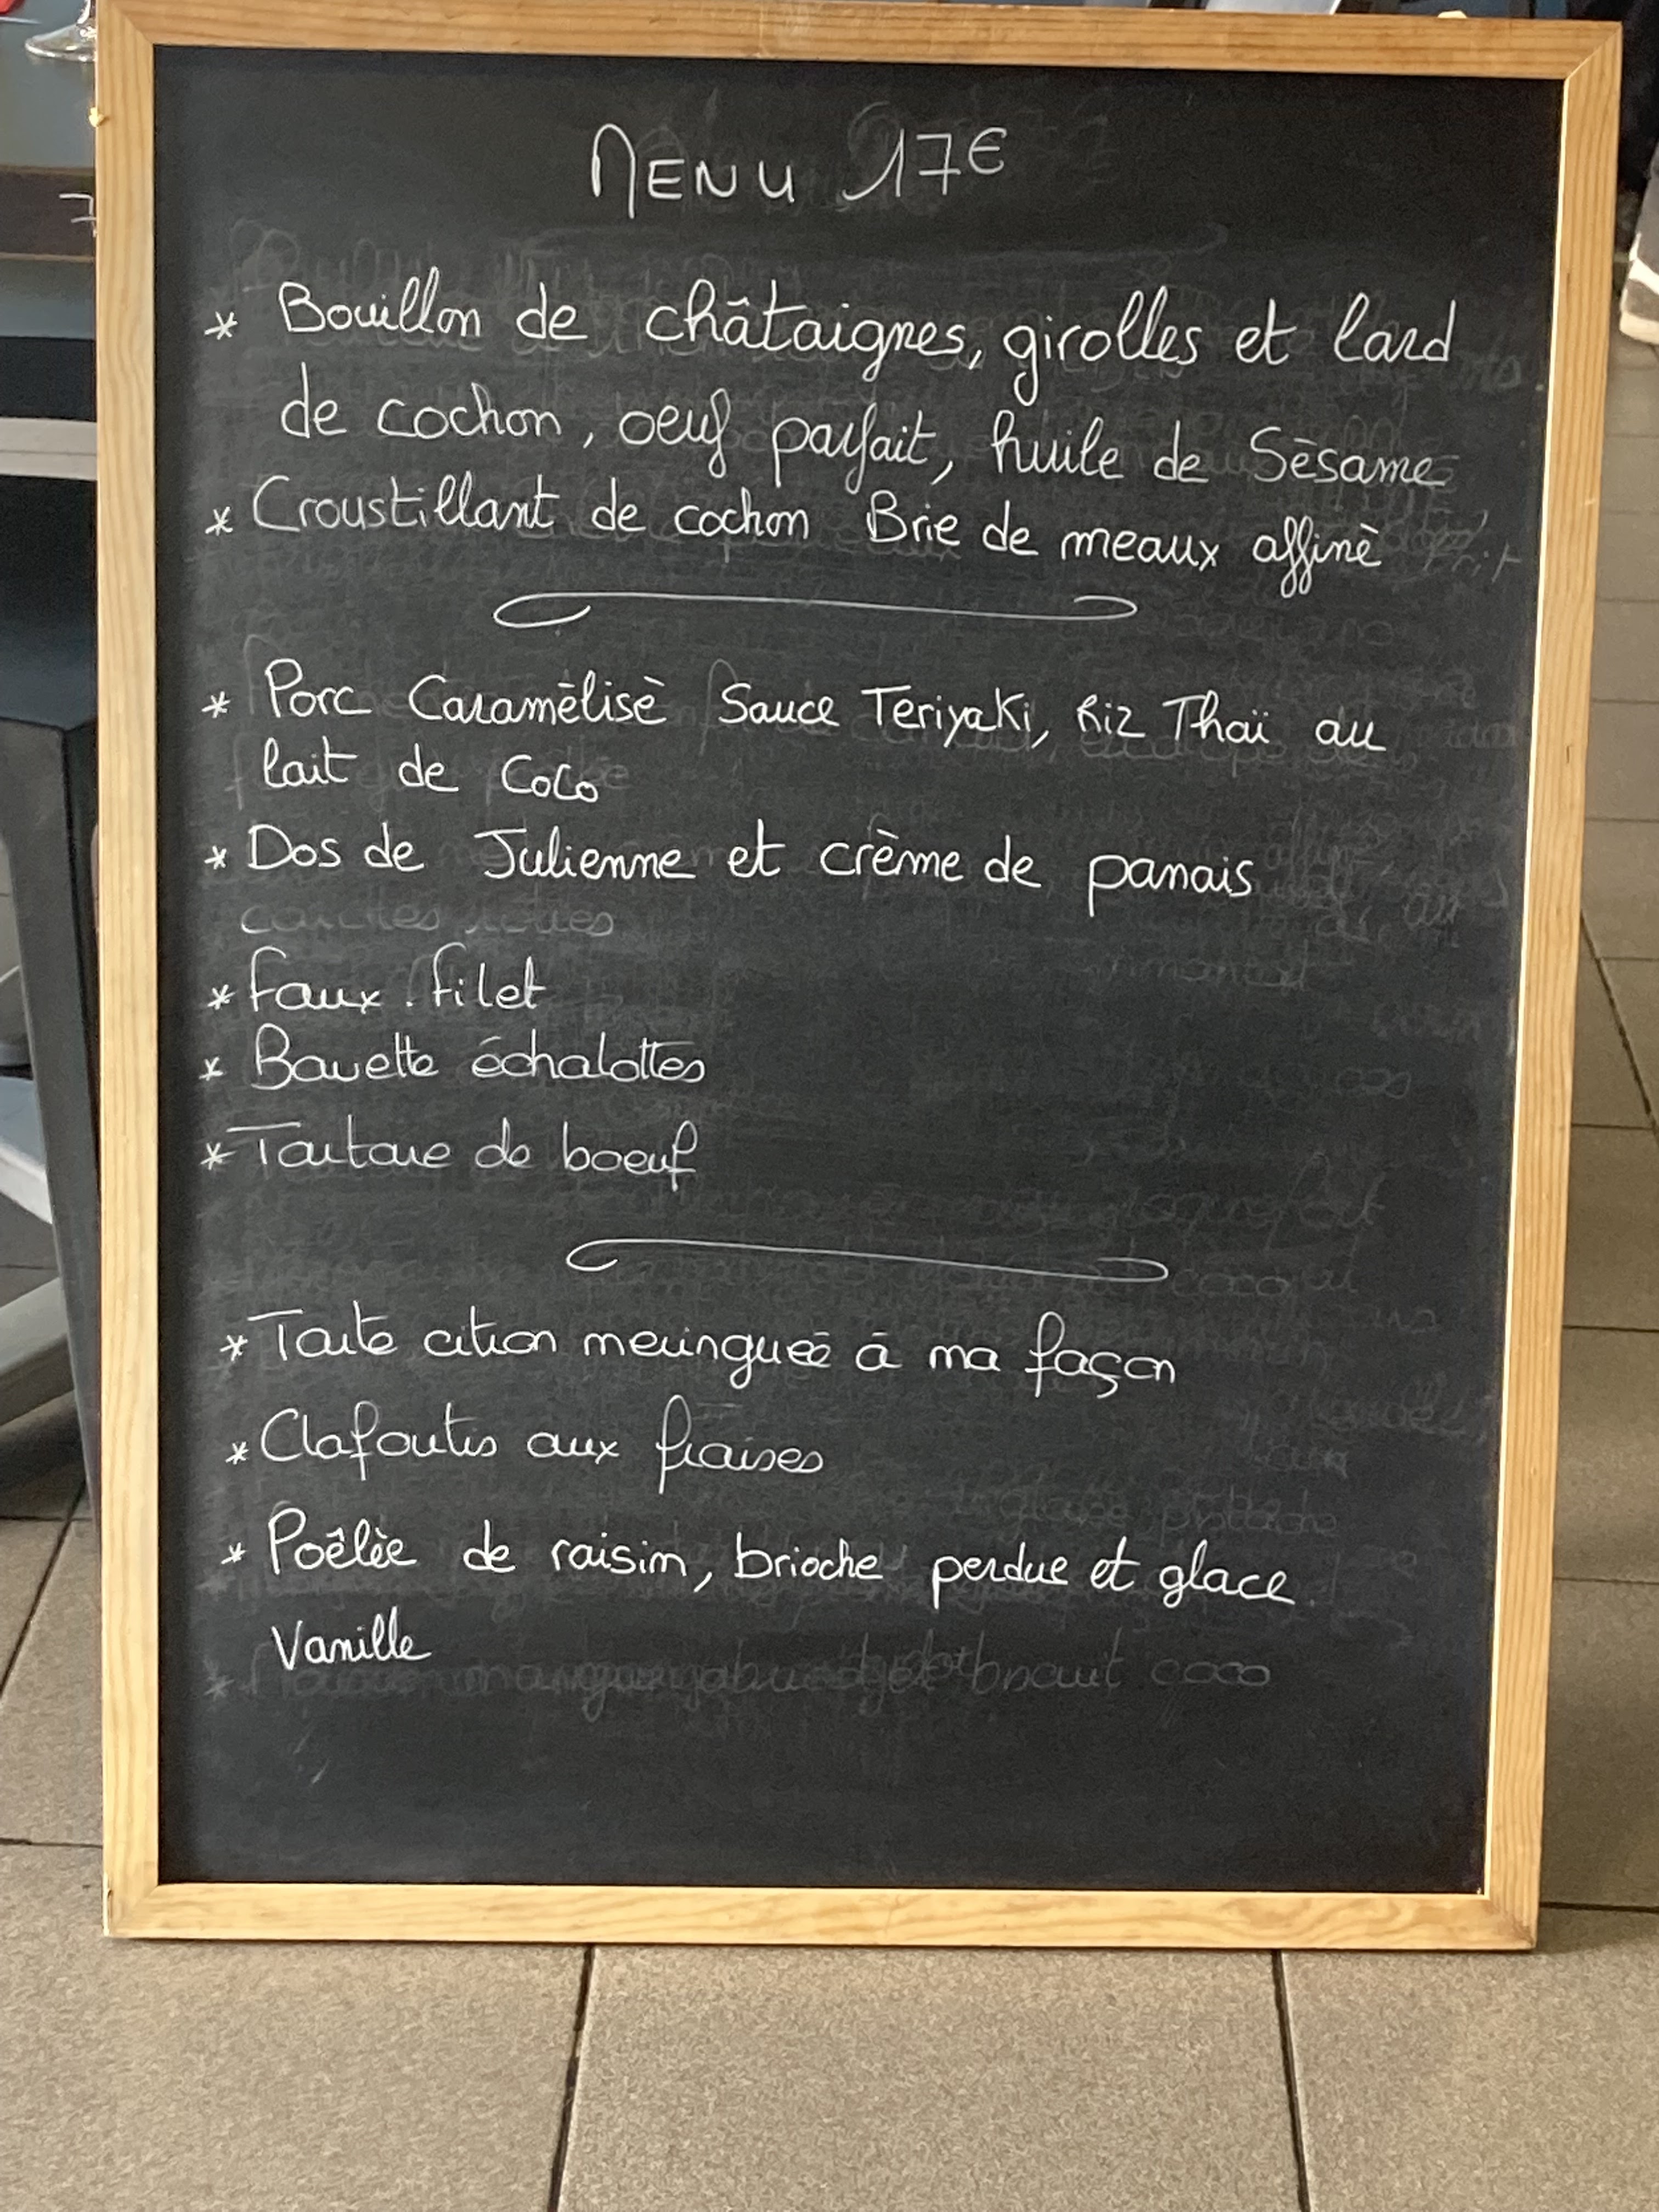 MENU 17€
* Bouillon de châtaignes, girolles et lard
de cochon, oeuf parfait, huile de Sèsame
* Croustillant de cochon Brie de meaux affinè
* Porc Caramēlisè Sauce Teriyaki, Riz Thaï au
lait de Coco
* Dos de Julienne et crème de panais
* Faux.filet
* Bavette échalottes
* Tartare de boeuf
* Tarte citron meringueē ā ma façon
* Clafoutis aux fraises
* Poêlèe de raisin, brioche perdue et glace
Vanille